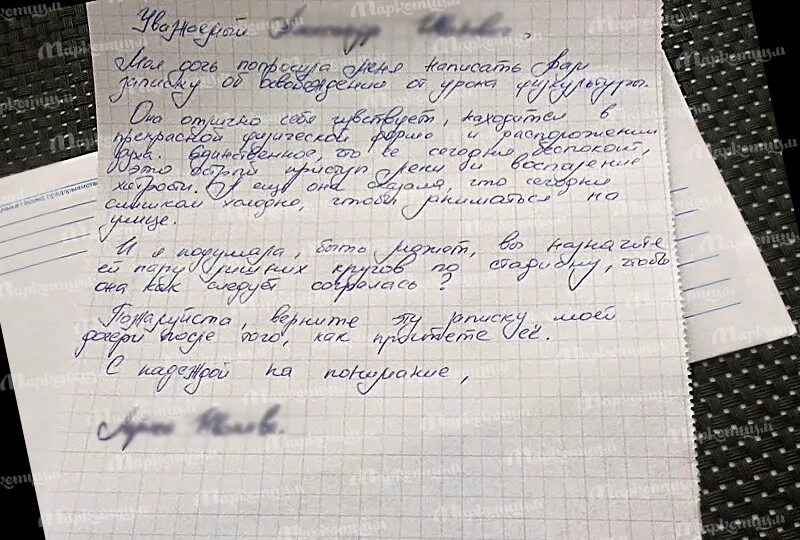 Уважаемый
Моя дочь попросила меня написать Вам
записку об освобождении от урока физкультуры.
Она отлично себя чувствует, находится в
прекрасной физической форме и расположении
духа. Единственное, что её сегодня беспокоит,
это острый приступ лени и воспаление
хитрости. А ещё она сказала, что сегодня
слишком холодно, чтобы заниматься на
улице.
И я подумала, быть может, вы назначите
ей пару лишних кругов по стадиону, чтобы
она как следует согрелась?
Пожалуйста, верните эту записку моей
дочери после того, как прочтёте её.
С надеждой на понимание,
Маркетинг